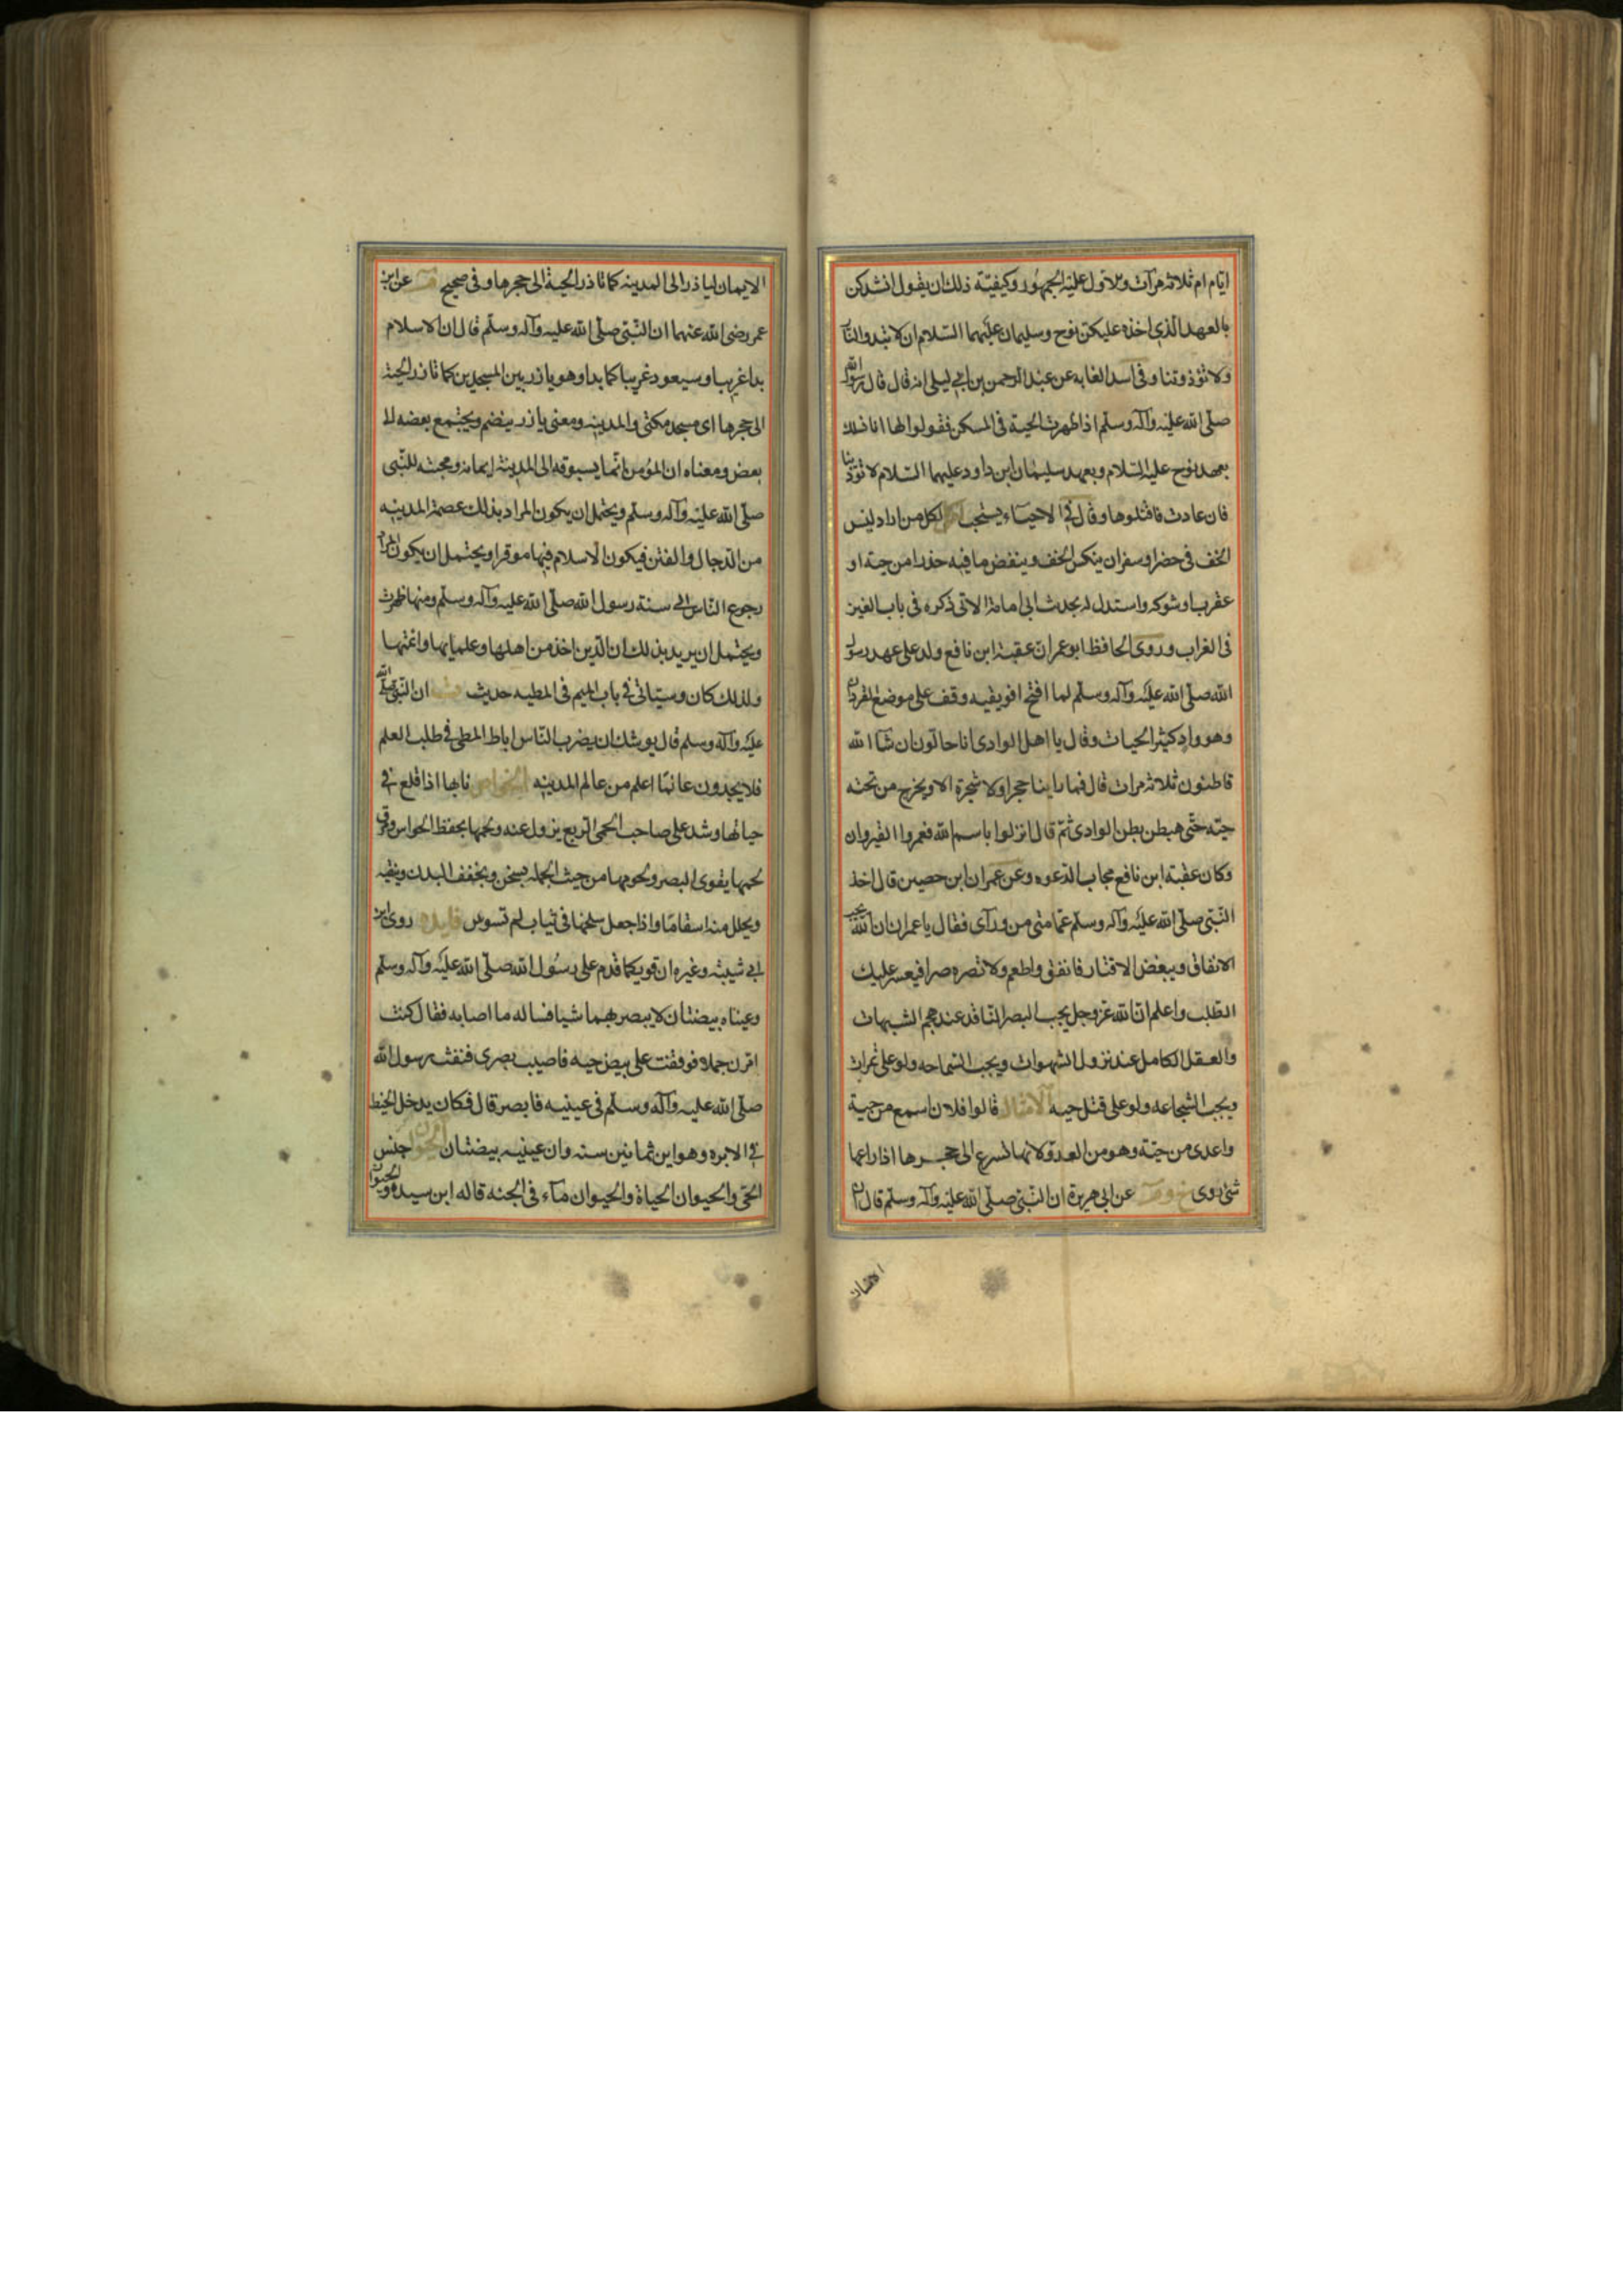 ايام ام ثلاثة مرات والاول عليه الجمهور وكيفيته ذلك ان يقول انشدكن
بالعهد الذي اخذه عليكن نوح وسليمان عليهما السلام ان لا تبدوا لنا
ولا تؤذوننا وفى اسد الغابه عن عبد الرحمن بن ابى ليلى انه قال قال رسول الله
صلى الله عليه وآله وسلم اذا ظهرت الحية فى المسكن فقولوا لها انا نسئلك
بعهد نوح عليه السلام وبعهد سليمان ابن داود عليهما السلام لا تؤذينا
فان عادت فاقتلوها وقال فى الاحياء يستحب لكل من اراد لبس
الخف فى حضر او سفر ان ينكس الخف وينفض ما فيه حذرا من حية او
عقرب او شوكه واستدل له بحديث ابى امامة الاتى ذكره فى باب الغين
فى الغراب وروى الحافظ ابو عمر ان عقبة ابن نافع ولد على عهد رسول
الله صلى الله عليه وآله وسلم لما افتتح افريقيه وقف على موضع القيروان
وهو واد كثير الحيات وقال يا اهل الوادى انا حالون ان شا الله
فاطنون ثلاثة مرات قال فما راينا حجرا ولا شجرة الا ويخرج من تحته
حيّه حتى هبطن بطن الوادى ثم قال انزلوا باسم الله فعمروا القيروان
وكان عقبة ابن نافع مجاب الدعوه وعن عمران ابن حصين قال اخذ
النبى صلى الله عليه وآله وسلم عمامتى من ورآى فقال يا عمران ان الله يحب
الانفاق ويبغض الاقتار فانفق واطعم ولا تصره صرا فيعسر عليك
الطلب واعلم ان الله عز وجل يحب البصر النافذ عند هجم الشبهات
والعقل الكامل عند نزول الشهوات ويحب السماحه ولو على تمرات
ويحب الشجاعه ولو على قتل حيه الامثال قالوا فلان اسمع من حية
واعدى من حيّة وهو من العدو لانها تسرع الى حجرها اذا راعها
شئ روى خ وم عن ابى هريرة ان النبى صلى الله عليه وآله وسلم قال ان
الايمان
الايمان لياذر الى المدينه كما تاذر الحية الى حجرها وفى صحيح م عن ابن
عمر رضى الله عنهما ان النبى صلى الله عليه وآله وسلم قال ان الاسلام
بدا غريبا وسيعود غريبا كما بدا وهو ياذر بين المسجدين كما تاذر الحية
الى حجرها اى مسجد مكة والمدينه ومعنى ياذر ينضم ويجتمع بعضه الى
بعض ومعناه ان المؤمن انما يسوقه الى المدينة ايمانه ومحبته للنبى
صلى الله عليه وآله وسلم ويحتمل ان يكون المراد بذلك عصمة المدينه
من الدجال والفتن فيكون الاسلام فيها موقرا ويحتمل ان يكون المراد
رجوع الناس الى سنة رسول الله صلى الله عليه وآله وسلم ومنها ظهرت
ويحتمل ان يريد بذلك ان الدين اخذ من اهلها وعلمايها وائمتها
ولذلك كان وسياتى فى باب الميم فى المطيه حديث ان النبى صلى الله
عليه وآله وسلم قال يوشك ان يضرب الناس اباط المطى فى طلب العلم
فلا يجدون عالما اعلم من عالم المدينه الخواص نابها اذا قلع فى
حياتها وشد على صاحب الحمى الربع يزول عنه ولحمها يحفظ الحواس ومرق
لحمها يقوى البصر ولحومها من حيث الجمله يسخن ويجفف البدن وينقيه
ويحلل منه اسقاما واذا جعل سلخها فى ثياب لم تسوس فايدة روى ابن
ابى شيبة وغيره ان فويكا قدم على رسول الله صلى الله عليه وآله وسلم
وعيناه بيضتان لا يبصر بهما شيا فساله ما اصابه فقال كنت
اقرن جملا فوقفت على بيض حيه فاصيب بصرى فنفث رسول الله
صلى الله عليه وآله وسلم فى عينيه فابصر قال فكان يدخل الخيط
فى الابره وهو ابن ثمانين سنه وان عينيه بيضتان الحيوان جنس
الحى والحيوان الحياة والحيوان مآء فى الجنه قاله ابن سيده والحيوان